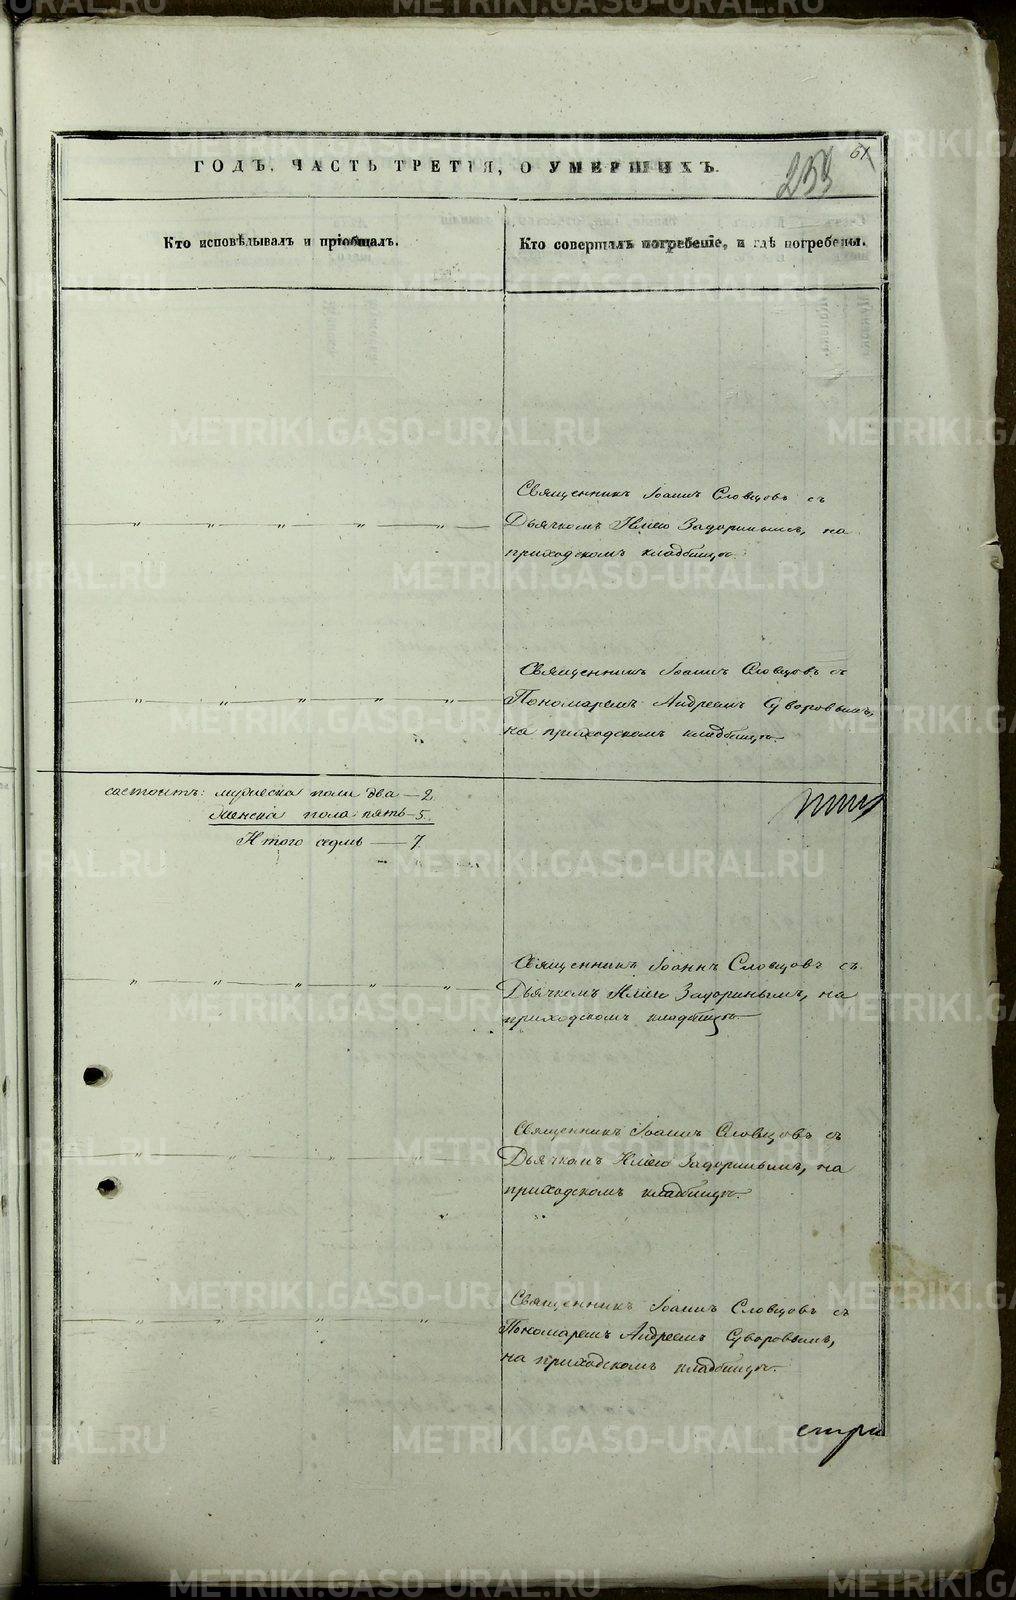 61
253
ГОДЪ, ЧАСТЬ ТРЕТІЯ, О УМЕРШИХЪ.
Кто исповѣдывалъ и пріобщалъ.
Кто совершалъ погребеніе, и гдѣ погребены.
Священникъ Іоаннъ Словцовъ съ
Дьячкомъ Иліею Задоринымъ, на
приходскомъ кладбищѣ.
Священникъ Іоаннъ Словцовъ съ
Пономаремъ Андреемъ Суворовымъ,
на приходскомъ кладбищѣ.
состоитъ: мужеска пола два — 2.
Женска пола пять — 5.
Итого седмь — 7.
Священникъ Іоаннъ Словцовъ съ
Дьячкомъ Иліею Задоринымъ, на
приходскомъ кладбищѣ.
Священникъ Іоаннъ Словцовъ съ
Дьячкомъ Иліею Задоринымъ, на
приходскомъ кладбищѣ.
Священникъ Іоаннъ Словцовъ съ
Пономаремъ Андреемъ Суворовымъ,
на приходскомъ кладбищѣ.
METRIKI.GASO-URAL.RU